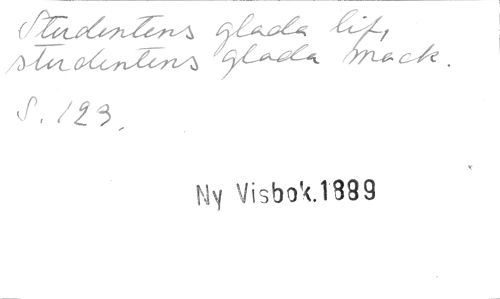 Studentens glada lif,
studentens glada mack.
S. 123.
Ny Visbok.1889